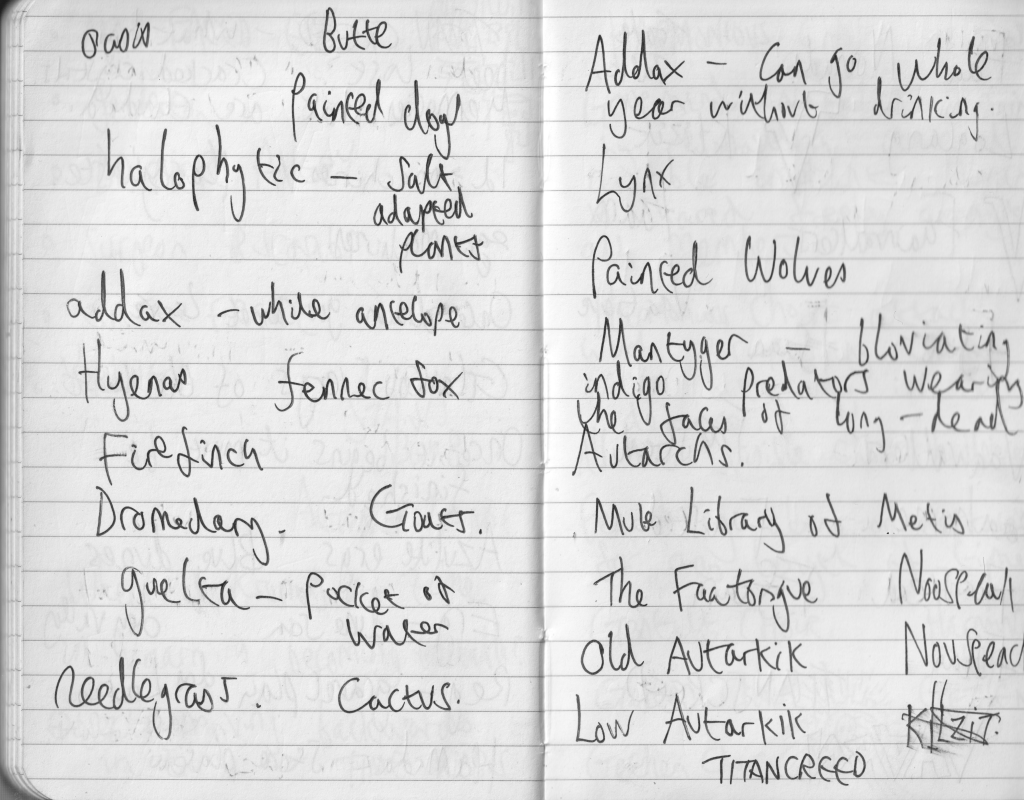 oasis Butte
Painted dog
halophytic – Salt
adapted
plants
addax – white antelope
Hyenas fennec fox
Firefinch
Dromedary. Goats.
guelta – Pocket of
water
needlegrass. Cactus.
Addax – Can go whole
year without drinking.
Lynx
Painted Wolves
Mantyger – bloviating
indigo predators wearing
the faces of long-dead
Autarchs.
Mute Library of Metis
The Faatongue
Old Autarkik
Low Autarkik
TITANCREED